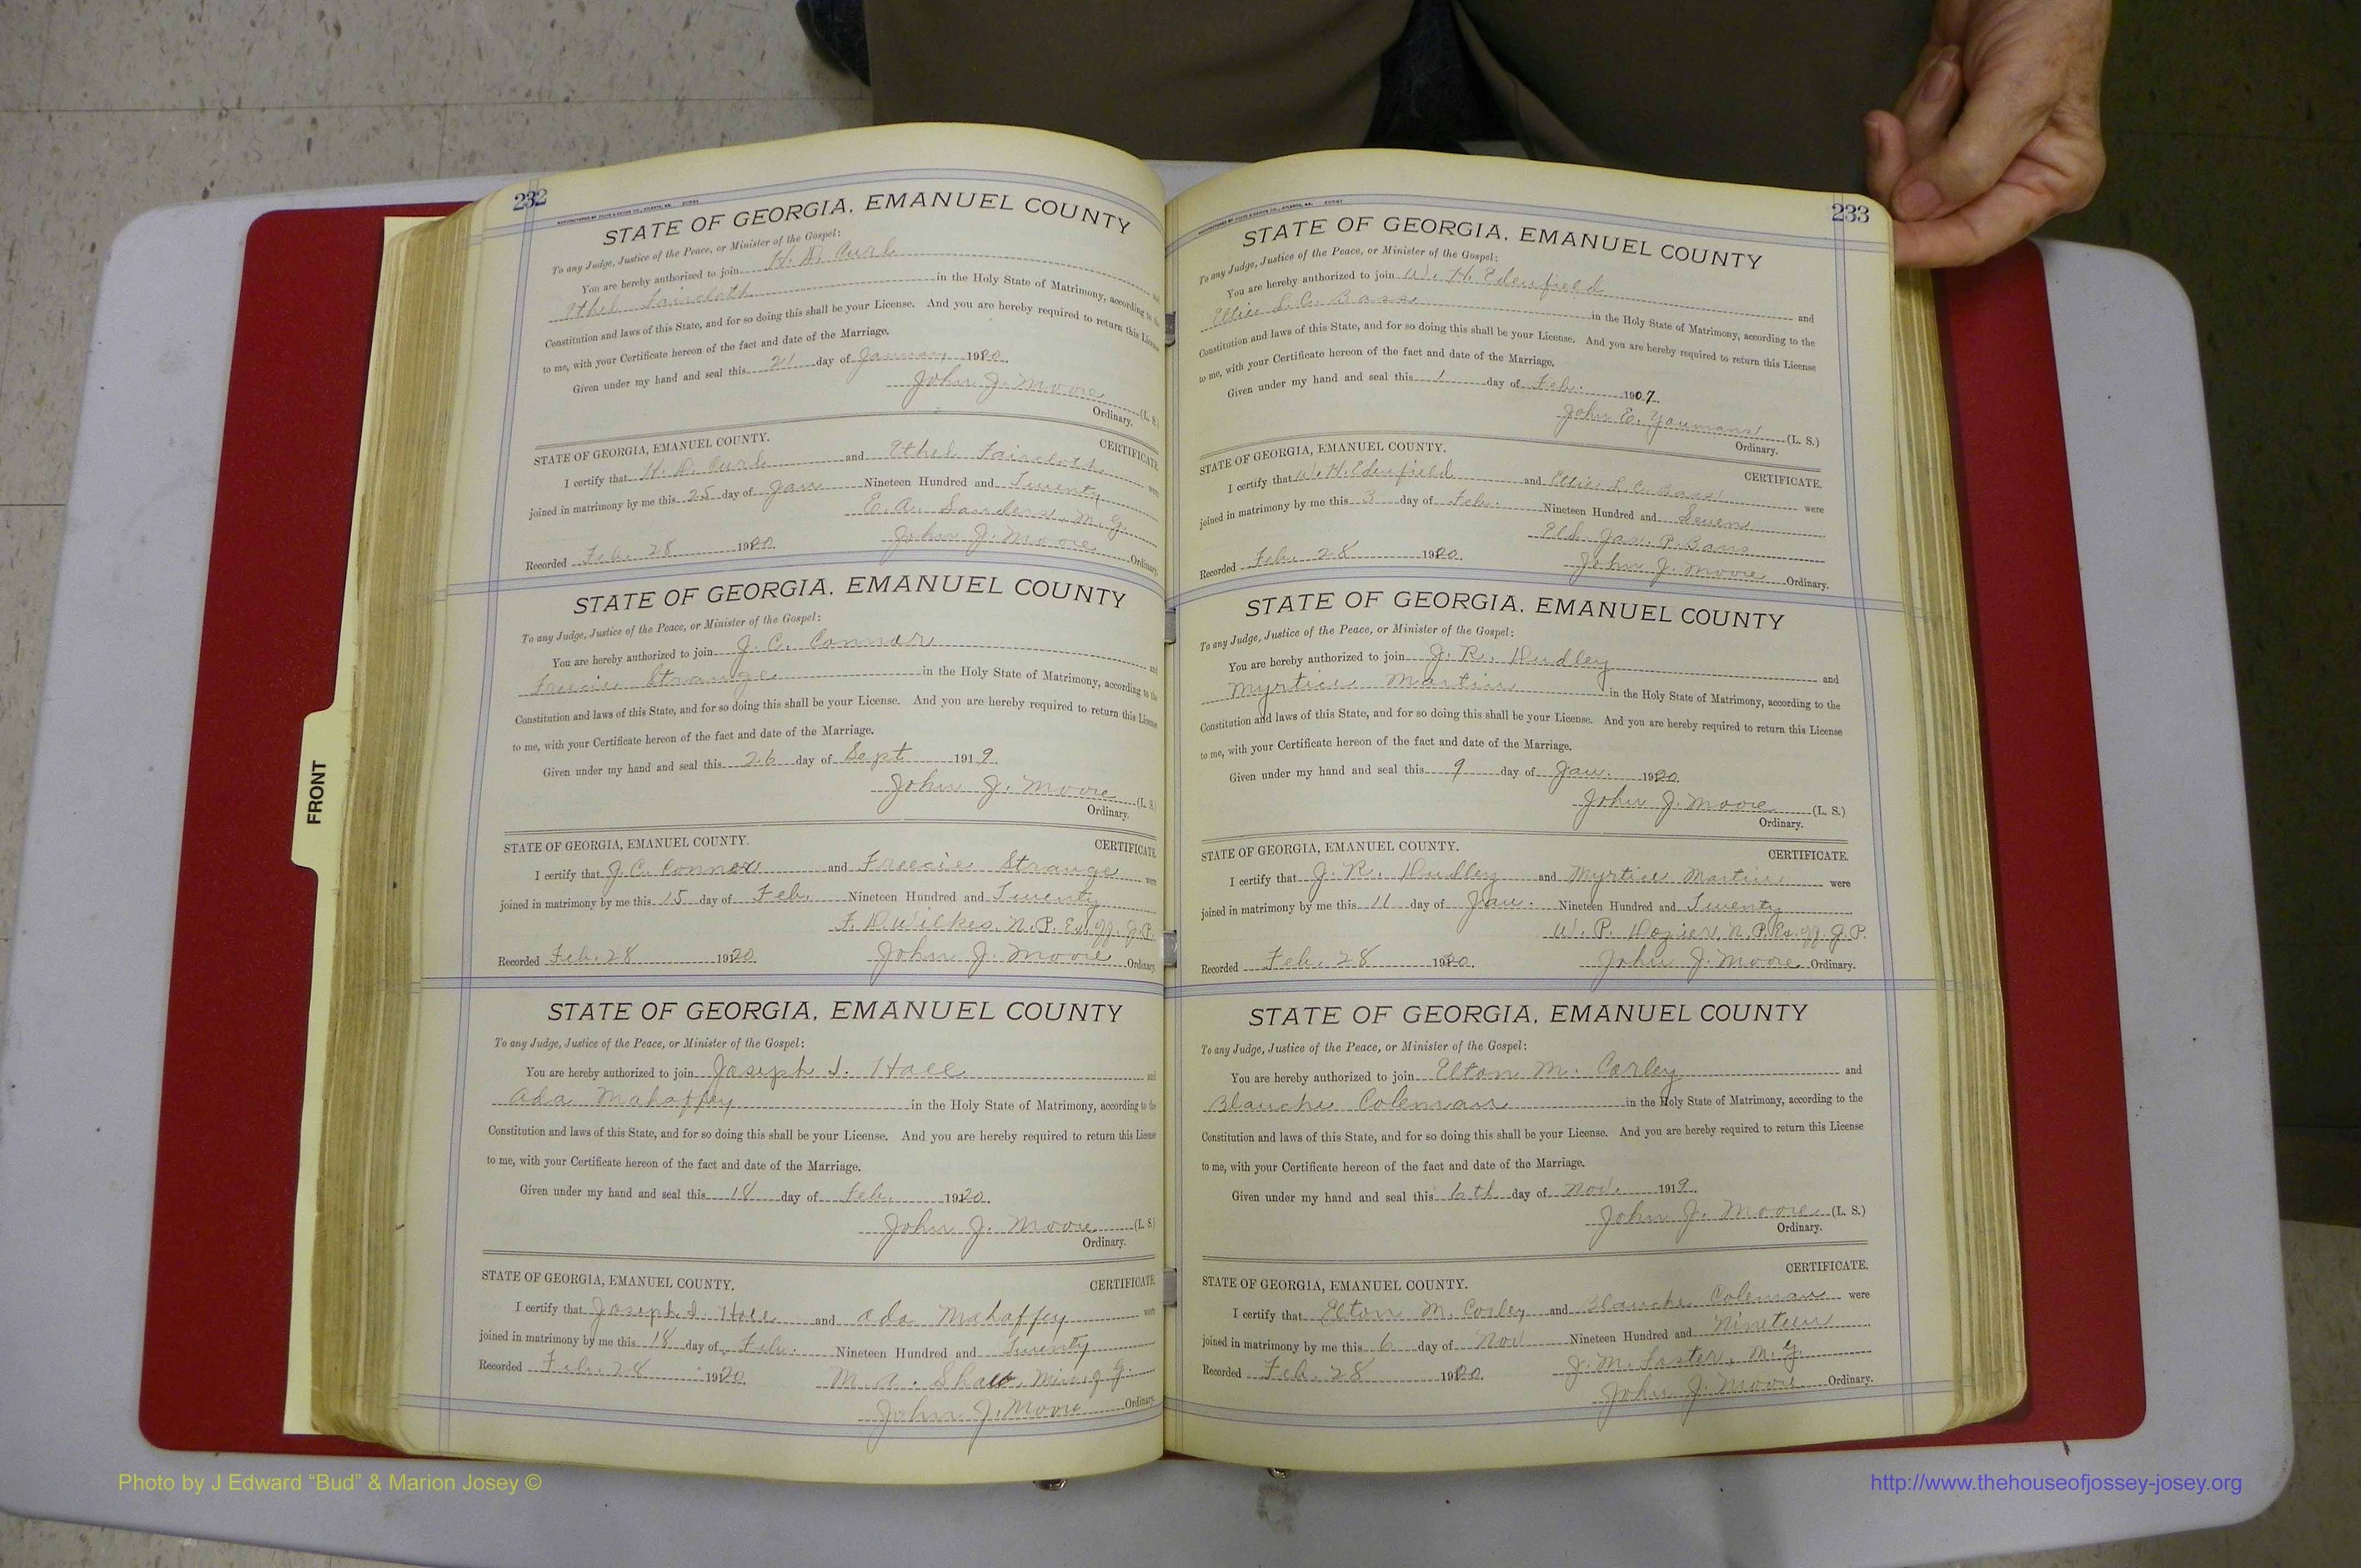 232
STATE OF GEORGIA, EMANUEL COUNTY
To any Judge, Justice of the Peace, or Minister of the Gospel:
You are hereby authorized to join H. D. Curl and
Ethel Faircloth in the Holy State of Matrimony, according to the
Constitution and laws of this State, and for so doing this shall be your License. And you are hereby required to return this License
to me, with your Certificate hereon of the fact and date of the Marriage.
Given under my hand and seal this 21 day of January 1920.
John J. Moore (L. S.)
Ordinary.
STATE OF GEORGIA, EMANUEL COUNTY. CERTIFICATE
I certify that H. D. Curl and Ethel Faircloth were
joined in matrimony by me this 25 day of Jan Nineteen Hundred and Twenty
E. A. Sanders, M. G.
Recorded Feb. 28 1920. John J. Moore Ordinary.
STATE OF GEORGIA, EMANUEL COUNTY
To any Judge, Justice of the Peace, or Minister of the Gospel:
You are hereby authorized to join J. C. Connor and
Freecie Strange in the Holy State of Matrimony, according to the
Constitution and laws of this State, and for so doing this shall be your License. And you are hereby required to return this License
to me, with your Certificate hereon of the fact and date of the Marriage.
Given under my hand and seal this 26 day of Sept 1919.
John J. Moore (L. S.)
Ordinary.
STATE OF GEORGIA, EMANUEL COUNTY. CERTIFICATE
I certify that J. C. Connor and Freecie Strange were
joined in matrimony by me this 15 day of Feb. Nineteen Hundred and Twenty
F. D. Wilkes, N. P. Ex. Off. J. P.
Recorded Feb. 28 1920. John J. Moore Ordinary
STATE OF GEORGIA, EMANUEL COUNTY
To any Judge, Justice of the Peace, or Minister of the Gospel:
You are hereby authorized to join Joseph I. Hall and
Ada Mahaffey in the Holy State of Matrimony, according to the
Constitution and laws of this State, and for so doing this shall be your License. And you are hereby required to return this License
to me, with your Certificate hereon of the fact and date of the Marriage.
Given under my hand and seal this 18 day of Feb. 1920.
John J. Moore (L. S)
Ordinary.
STATE OF GEORGIA, EMANUEL COUNTY. CERTIFICATE
I certify that Joseph I. Hall and Ada Mahaffey were
joined in matrimony by me this 18 day of Feb. Nineteen Hundred and Twenty
Recorded Feb. 28 1920. M. A. Shaw, Min. of G.
John J. Moore Ordinary
233
STATE OF GEORGIA, EMANUEL COUNTY
To any Judge, Justice of the Peace, or Minister of the Gospel:
You are hereby authorized to join W. H. Edenfield and
Ellie L. C. Bass in the Holy State of Matrimony, according to the
Constitution and laws of this State, and for so doing this shall be your License. And you are hereby required to return this License
to me, with your Certificate hereon of the fact and date of the Marriage.
Given under my hand and seal this 1 day of Feb. 1907.
John E. Youmans (L. S.)
Ordinary.
STATE OF GEORGIA, EMANUEL COUNTY. CERTIFICATE.
I certify that W. H. Edenfield and Ellie L. C. Bass were
joined in matrimony by me this 3 day of Feb. Nineteen Hundred and Seven
Eld. Jas. P. Bass
Recorded Feb. 28 1920. John J. Moore Ordinary.
STATE OF GEORGIA, EMANUEL COUNTY
To any Judge, Justice of the Peace, or Minister of the Gospel:
You are hereby authorized to join J. R. Dudley and
Myrtice Martin in the Holy State of Matrimony, according to the
Constitution and laws of this State, and for so doing this shall be your License. And you are hereby required to return this License
to me, with your Certificate hereon of the fact and date of the Marriage.
Given under my hand and seal this 9 day of Jan. 1920.
John J. Moore (L. S.)
Ordinary.
STATE OF GEORGIA, EMANUEL COUNTY. CERTIFICATE.
I certify that J. R. Dudley and Myrtice Martin were
joined in matrimony by me this 11 day of Jan. Nineteen Hundred and Twenty
W. P. Dozier, N. P. Ex. Off. J. P.
Recorded Feb. 28 1920. John J. Moore Ordinary.
STATE OF GEORGIA, EMANUEL COUNTY
To any Judge, Justice of the Peace, or Minister of the Gospel:
You are hereby authorized to join Elton M. Corley and
Blanche Coleman in the Holy State of Matrimony, according to the
Constitution and laws of this State, and for so doing this shall be your License. And you are hereby required to return this License
to me, with your Certificate hereon of the fact and date of the Marriage.
Given under my hand and seal this 6th day of Nov. 1919.
John J. Moore (L. S.)
Ordinary.
STATE OF GEORGIA, EMANUEL COUNTY. CERTIFICATE.
I certify that Elton M. Corley and Blanche Coleman were
joined in matrimony by me this 6 day of Nov Nineteen Hundred and Nineteen
Recorded Feb. 28 1920. J. M. Foster, M. G.
John J. Moore Ordinary.
FRONT
Photo by J Edward “Bud” & Marion Josey ©
http://www.thehouseofjossey-josey.org